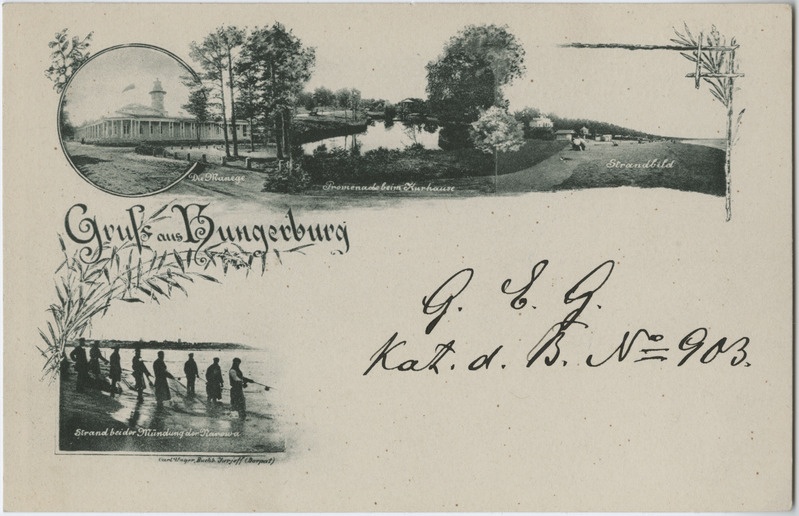 Die Manege
Promenade beim Kurhause
Strandbild
Gruß aus Hungerburg
G. E. G.
Kat. d. B. No 903.
Strand bei der Mündung der Narowa
Carl Unger, Buchh. Jurjeff (Dorpat)